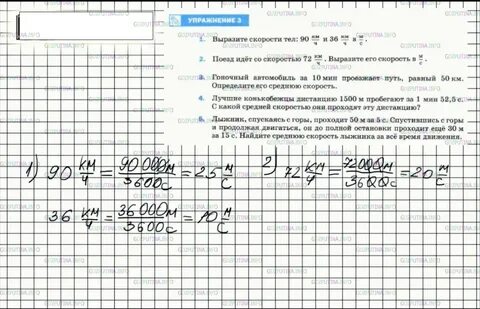 УПРАЖНЕНИЕ 3
1. Выразите скорости тел: 90 км/ч и 36 км/ч в м/с.
2. Поезд идёт со скоростью 72 км/ч. Выразите его скорость в м/с.
3. Гоночный автомобиль за 10 мин проезжает путь, равный 50 км.
Определите его среднюю скорость.
4. Лучшие конькобежцы дистанцию 1500 м пробегают за 1 мин 52,5 с.
С какой средней скоростью они проходят эту дистанцию?
5. Лыжник, спускаясь с горы, проходит 50 м за 5 с. Спустившись с горы
и продолжая двигаться, он до полной остановки проходит ещё 30 м
за 15 с. Найдите среднюю скорость лыжника за всё время движения.
1) 90 км/ч = 90000м/3600с = 25 м/с
2) 72 км/ч = 72000м/3600с = 20 м/с
36 км/ч = 36000м/3600с = 10 м/с